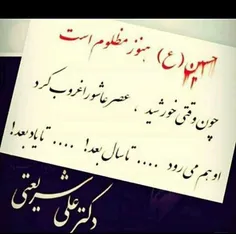 حسین (ع) هنوز مظلوم است
چون وقتی خورشید ، عصر عاشورا غروب کرد
او هم می رود .... تا سال بعد! .... تا یاد بعد!
دکتر علی شریعتی